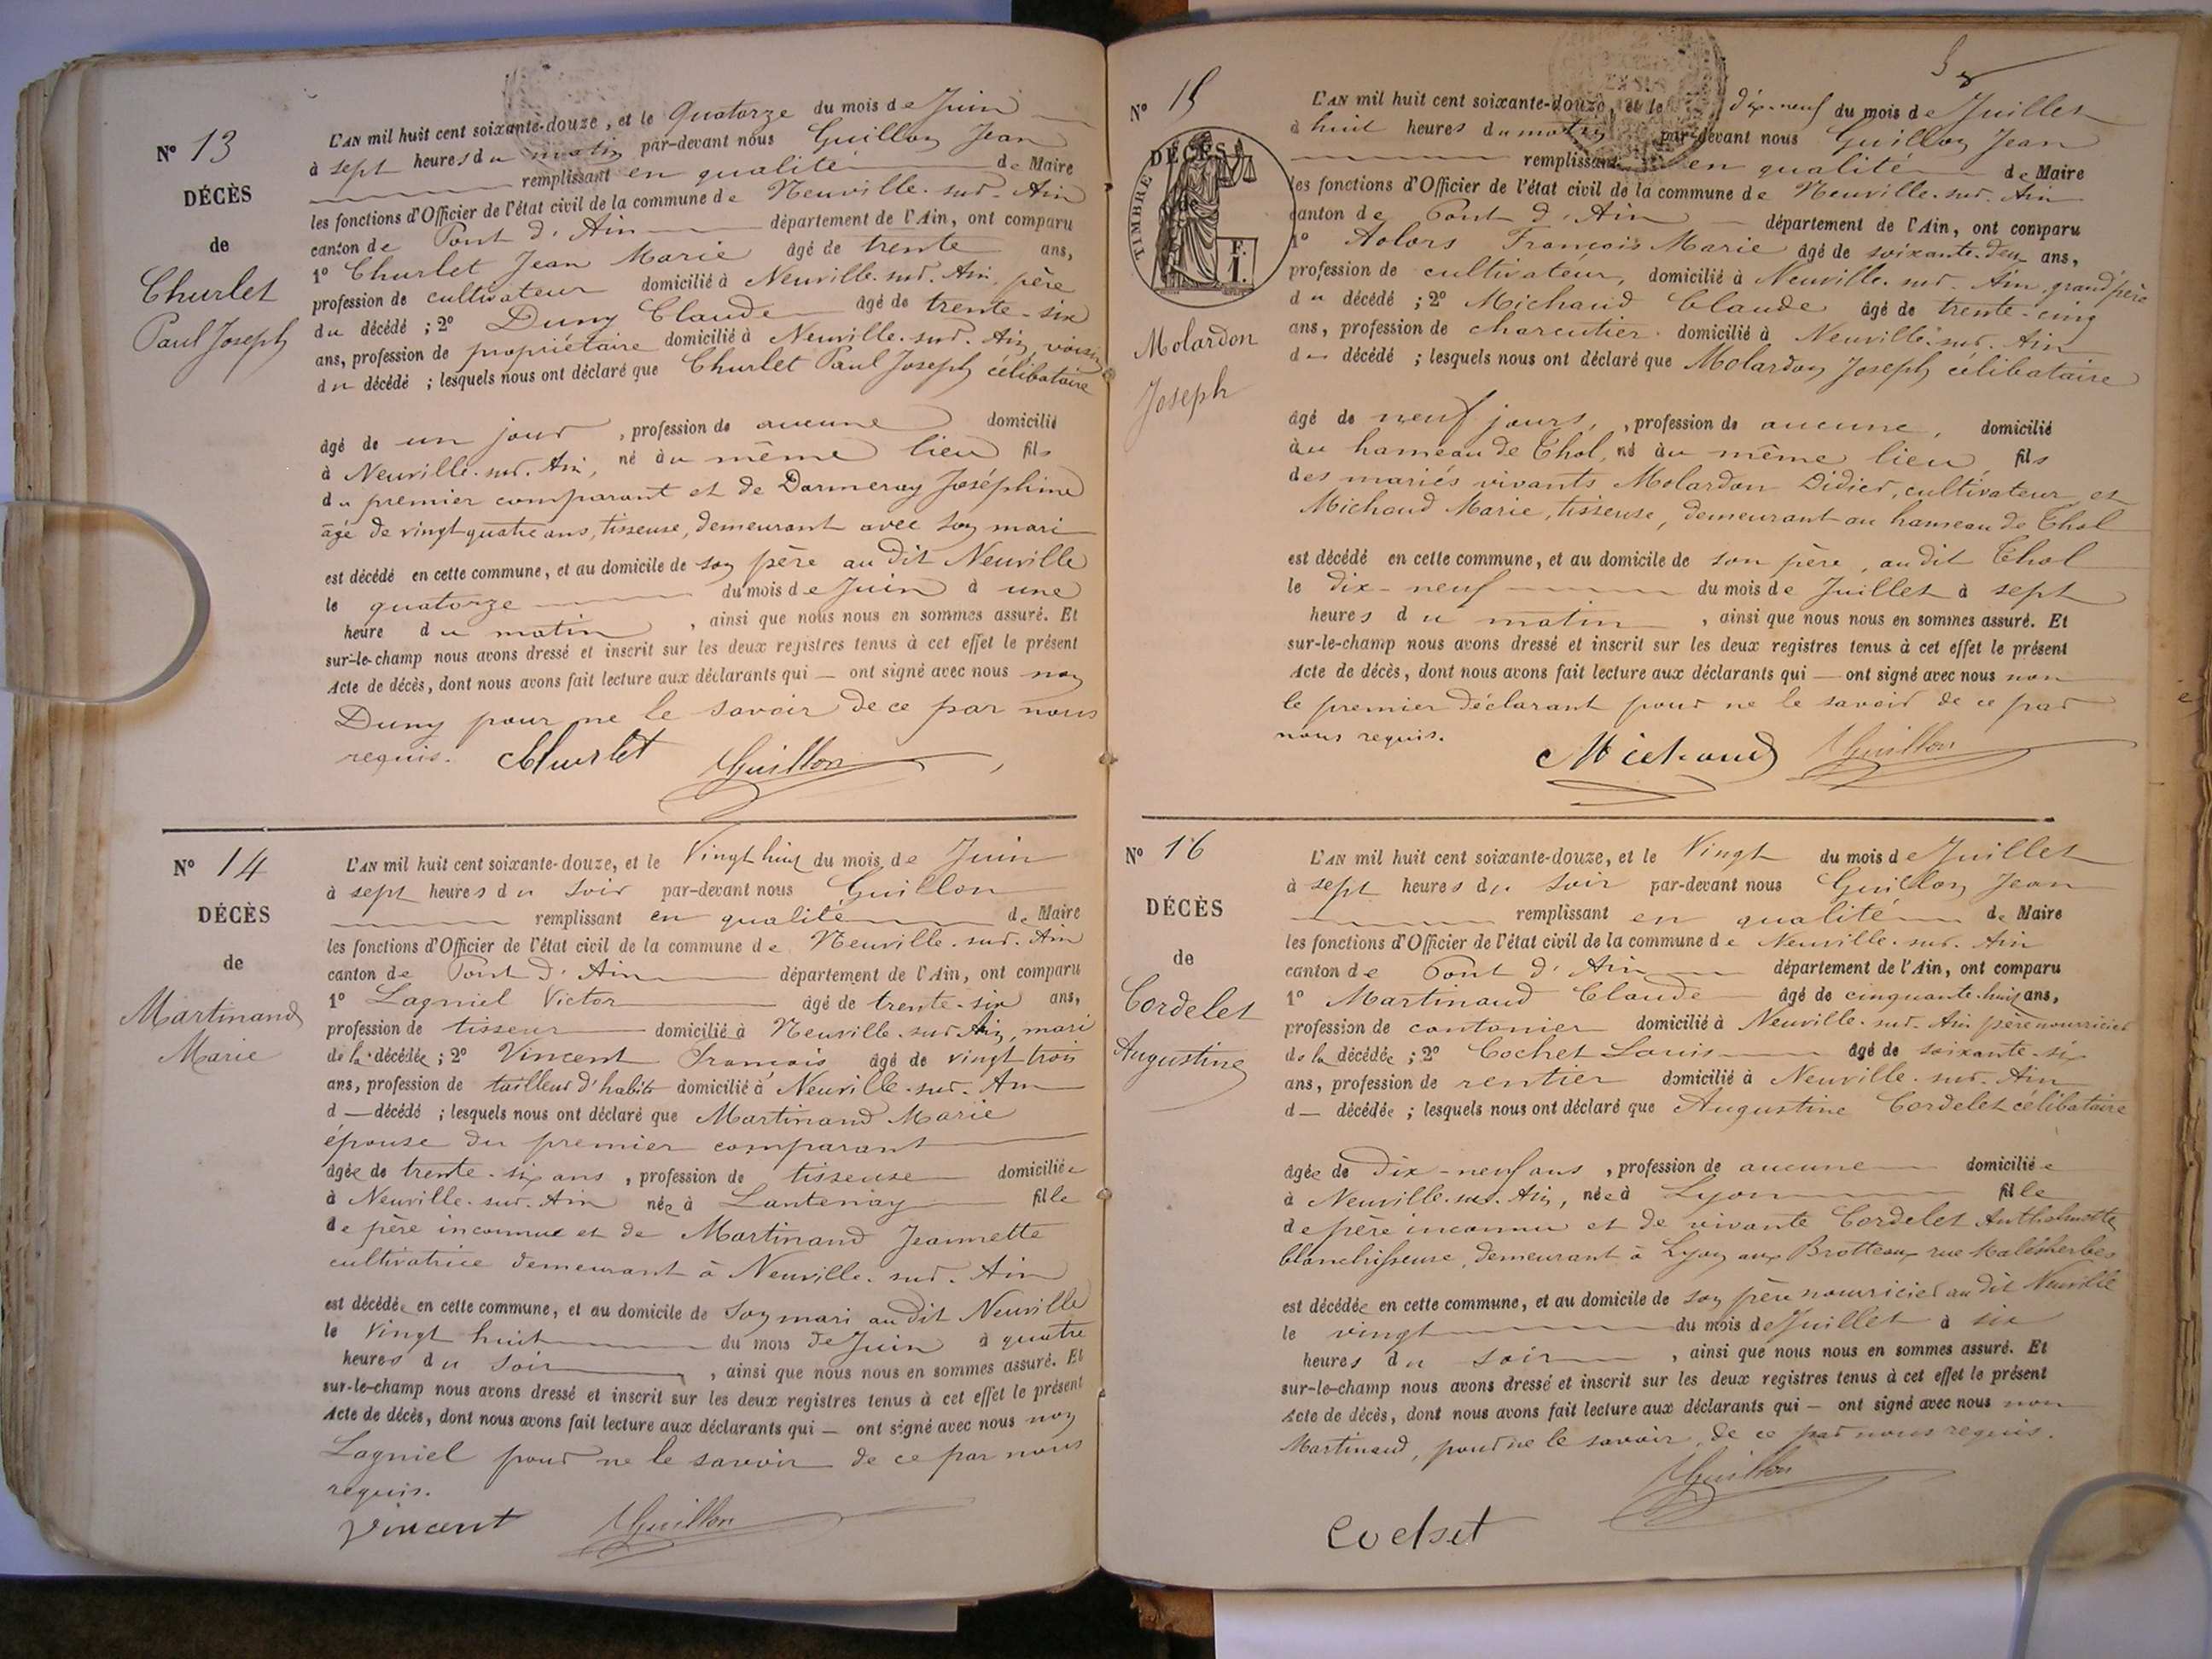 Nº 13
DÉCÈS
de
Churlet
Paul Joseph
L'AN mil huit cent soixante-douze, et le Quatorze du mois de Juin
à sept heures du matin par-devant nous Guillon Jean
remplissant en qualité de Maire
les fonctions d'Officier de l'état civil de la commune de Neuville-sur-Ain
canton de Pont d'Ain département de l'Ain, ont comparu
1º Churlet Jean Marie âgé de trente ans,
profession de cultivateur domicilié à Neuville-sur-Ain, père
du décédé ; 2º Duny Claude âgé de trente-six
ans, profession de propriétaire domicilié à Neuville-sur-Ain, voisin
du décédé ; lesquels nous ont déclaré que Churlet Paul Joseph célibataire
âgé de un jour, profession de aucune domicilié
à Neuville-sur-Ain, né au même lieu fils
du premier comparant et de Darmeray Joséphine
âgé de vingt quatre ans, tisseuse, demeurant avec son mari
est décédé en cette commune, et au domicile de son père au dit Neuville
le quatorze du mois de Juin à une
heure du matin, ainsi que nous nous en sommes assuré. Et
sur-le-champ nous avons dressé et inscrit sur les deux registres tenus à cet effet le présent
Acte de décès, dont nous avons fait lecture aux déclarants qui — ont signé avec nous non
Duny pour ne le savoir de ce par nous
requis. Churlet Guillon
Nº 14
DÉCÈS
de
Martinand
Marie
L'AN mil huit cent soixante-douze, et le Vingt huit du mois de Juin
à sept heures du soir par-devant nous Guillon
remplissant en qualité de Maire
les fonctions d'Officier de l'état civil de la commune de Neuville-sur-Ain
canton de Pont d'Ain département de l'Ain, ont comparu
1º Lagniel Victor âgé de trente-six ans,
profession de tisseur domicilié à Neuville-sur-Ain, mari
de la décédée ; 2º Vincent François âgé de vingt trois
ans, profession de tailleur d'habits domicilié à Neuville-sur-Ain
d — décédé ; lesquels nous ont déclaré que Martinand Marie
épouse du premier comparant
âgée de trente-six ans, profession de tisseuse domiciliée
à Neuville-sur-Ain née à Lantenay fille
de père inconnu et de Martinand Jeannette
cultivatrice demeurant à Neuville-sur-Ain
est décédée en cette commune, et au domicile de son mari au dit Neuville
le vingt huit du mois de Juin à quatre
heures du soir, ainsi que nous nous en sommes assuré. Et
sur-le-champ nous avons dressé et inscrit sur les deux registres tenus à cet effet le présent
Acte de décès, dont nous avons fait lecture aux déclarants qui — ont signé avec nous non
Lagniel pour ne le savoir de ce par nous
requis.
Vincent Guillon
Nº 15
DÉCÈS
de
TIMBRE
F.
1.
Molardon
Joseph
L'AN mil huit cent soixante-douze, et le dix-neuf du mois de Juillet
à huit heures du matin par-devant nous Guillon Jean
remplissant en qualité de Maire
les fonctions d'Officier de l'état civil de la commune de Neuville-sur-Ain
canton de Pont d'Ain département de l'Ain, ont comparu
1º François Marie âgé de soixante-deux ans,
profession de cultivateur, domicilié à Neuville-sur-Ain grand père
du décédé ; 2º Michaud Claude âgé de trente-cinq
ans, profession de charcutier domicilié à Neuville-sur-Ain
du décédé ; lesquels nous ont déclaré que Molardon Joseph célibataire
âgé de neuf jours, profession de aucune, domicilié
au hameau de Thol, né au même lieu fils
des mariés vivants Molardon Didier, cultivateur et
Michaud Marie, tisseuse, demeurant au hameau de Thol
est décédé en cette commune, et au domicile de son père, au dit Thol
le dix-neuf du mois de Juillet à sept
heures du matin, ainsi que nous nous en sommes assuré. Et
sur-le-champ nous avons dressé et inscrit sur les deux registres tenus à cet effet le présent
Acte de décès, dont nous avons fait lecture aux déclarants qui — ont signé avec nous non
le premier déclarant pour ne le savoir de ce par
nous requis.
Michaud Guillon
Nº 16
DÉCÈS
de
Cordelet
Augustine
L'AN mil huit cent soixante-douze, et le Vingt du mois de Juillet
à sept heures du soir par-devant nous Guillon Jean
remplissant en qualité de Maire
les fonctions d'Officier de l'état civil de la commune de Neuville-sur-Ain
canton de Pont d'Ain département de l'Ain, ont comparu
1º Martinaud Claude âgé de cinquante-huit ans,
profession de cantonier domicilié à Neuville-sur-Ain père nourricier
de la décédée ; 2º Cochet Louis âgé de soixante-six
ans, profession de rentier domicilié à Neuville-sur-Ain
d — décédée ; lesquels nous ont déclaré que Augustine Cordelet célibataire
âgée de dix-neuf ans, profession de aucune domiciliée
à Neuville-sur-Ain, née à Lyon fille
de père inconnu et de vivante Cordelet Anthelmette
blanchisseuse, demeurant à Lyon aux Brotteaux rue Malesherbes
est décédée en cette commune, et au domicile de son père nourricier au dit Neuville
le vingt du mois de Juillet à six
heures du soir, ainsi que nous nous en sommes assuré. Et
sur-le-champ nous avons dressé et inscrit sur les deux registres tenus à cet effet le présent
Acte de décès, dont nous avons fait lecture aux déclarants qui — ont signé avec nous non
Martinaud, pour ne le savoir, de ce par nous requis.
Guillon
Cochet